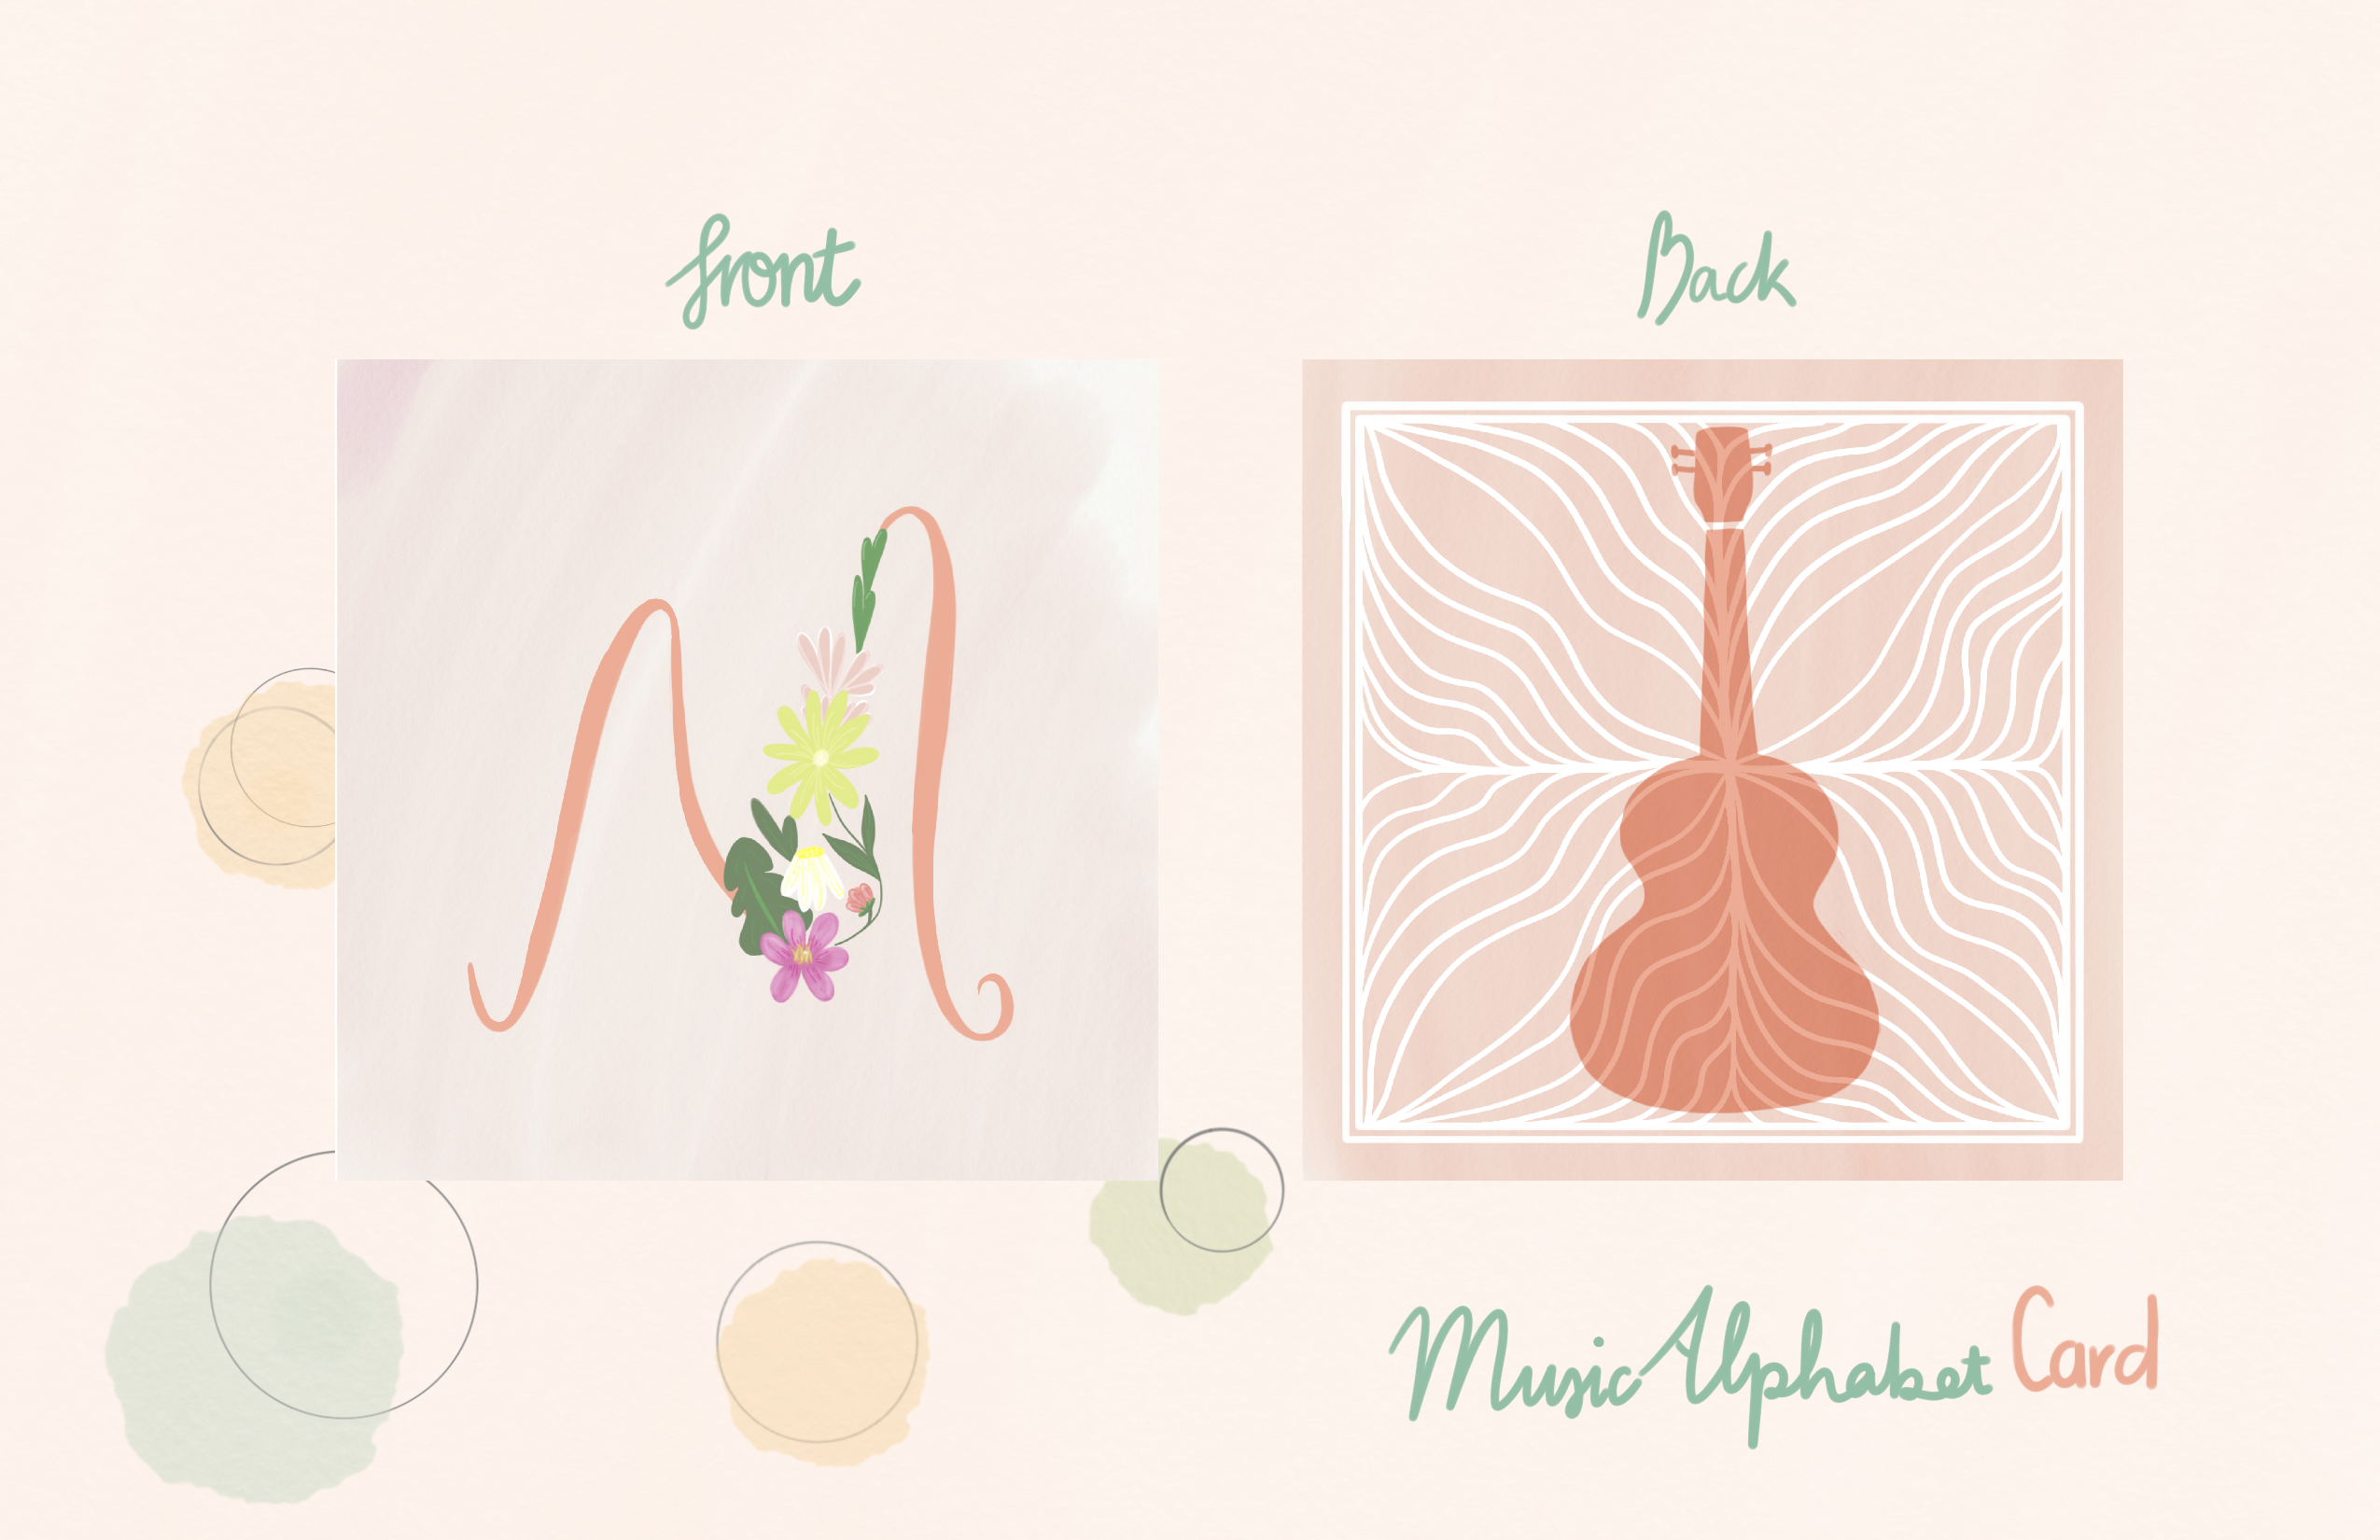 front
Back
M
Music Alphabet Card